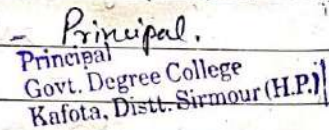 - Principal.
Principal
Govt. Degree College
Kafota, Distt. Sirmour (H.P.)